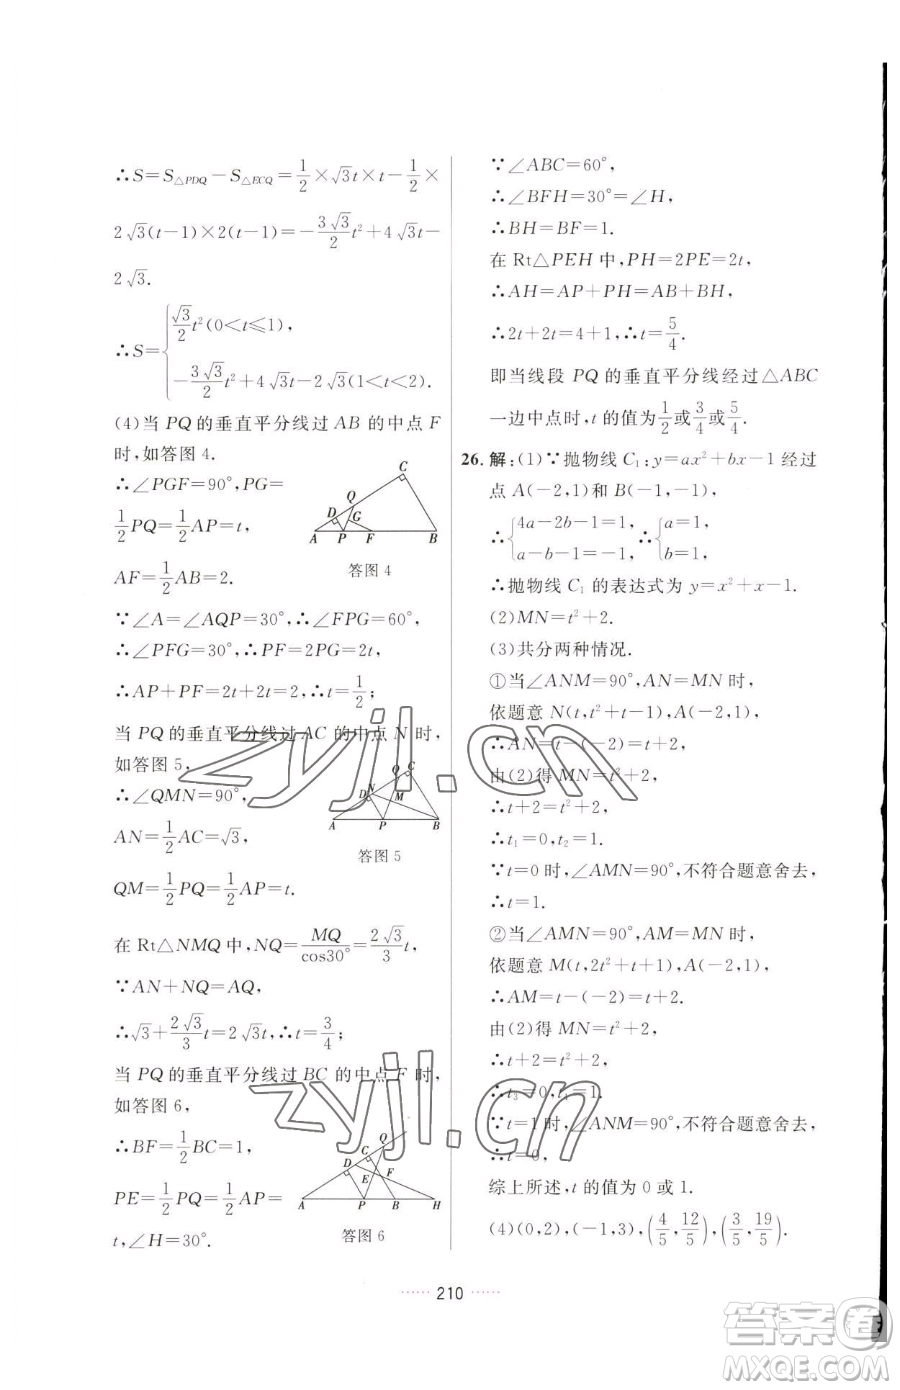 ∴S=S△PDQ-S△ECQ=1/2×√3t×t-1/2×
2√3(t-1)×2(t-1)=-3√3/2t²+4√3t-
2√3.
∴S={√3/2t²(0<t≤1),
-3√3/2t²+4√3t-2√3(1<t<2).
(4)当PQ的垂直平分线过AB的中点F
时,如答图4.
∴∠PGF=90°,PG=
1/2PQ=1/2AP=t,
AF=1/2AB=2.
A P F B D G Q C
答图4
∵∠A=∠AQP=30°,∴∠FPG=60°,
∴∠PFG=30°,∴PF=2PG=2t,
∴AP+PF=2t+2t=2,∴t=1/2;
当PQ的垂直平分线过AC的中点N时,
如答图5,
∴∠QMN=90°,
AN=1/2AC=√3,
QM=1/2PQ=1/2AP=t.
A P B D N M Q C
答图5
在Rt△NMQ中,NQ=MQ/cos30°=2√3/3t,
∵AN+NQ=AQ,
∴√3+2√3/3t=2√3t,∴t=3/4;
当PQ的垂直平分线过BC的中点F时,
如答图6,
∴BF=1/2BC=1,
PE=1/2PQ=1/2AP=
t,∠H=30°.
A P B H D E F C Q
答图6
∵∠ABC=60°,
∴∠BFH=30°=∠H,
∴BH=BF=1.
在Rt△PEH中,PH=2PE=2t,
∴AH=AP+PH=AB+BH,
∴2t+2t=4+1,∴t=5/4.
即当线段PQ的垂直平分线经过△ABC
一边中点时,t的值为1/2或3/4或5/4.
26.解:(1)∵抛物线C₁:y=ax²+bx-1经过
点A(-2,1)和B(-1,-1),
∴{4a-2b-1=1, a-b-1=-1, ∴{a=1, b=1,
∴抛物线C₁的表达式为y=x²+x-1.
(2)MN=t²+2.
(3)共分两种情况.
①当∠ANM=90°,AN=MN时,
依题意N(t,t²+t-1),A(-2,1),
∴AN=t-(-2)=t+2.
由(2)得MN=t²+2,
∴t+2=t²+2,
∴t₁=0,t₂=1.
∵t=0时,∠AMN=90°,不符合题意舍去,
∴t=1.
②当∠AMN=90°,AM=MN时,
依题意M(t,2t²+t+1),A(-2,1),
∴AM=t-(-2)=t+2.
由(2)得MN=t²+2,
∴t+2=t²+2,
∴t₃=0,t₄=1,
∵t=1时,∠ANM=90°,不符合题意舍去,
∴t=0.
综上所述,t的值为0或1.
(4)(0,2),(-1,3),(4/5,12/5),(3/5,19/5).
210
zyjl.cn
zyjl.cn
答案卷
MXQE.COM